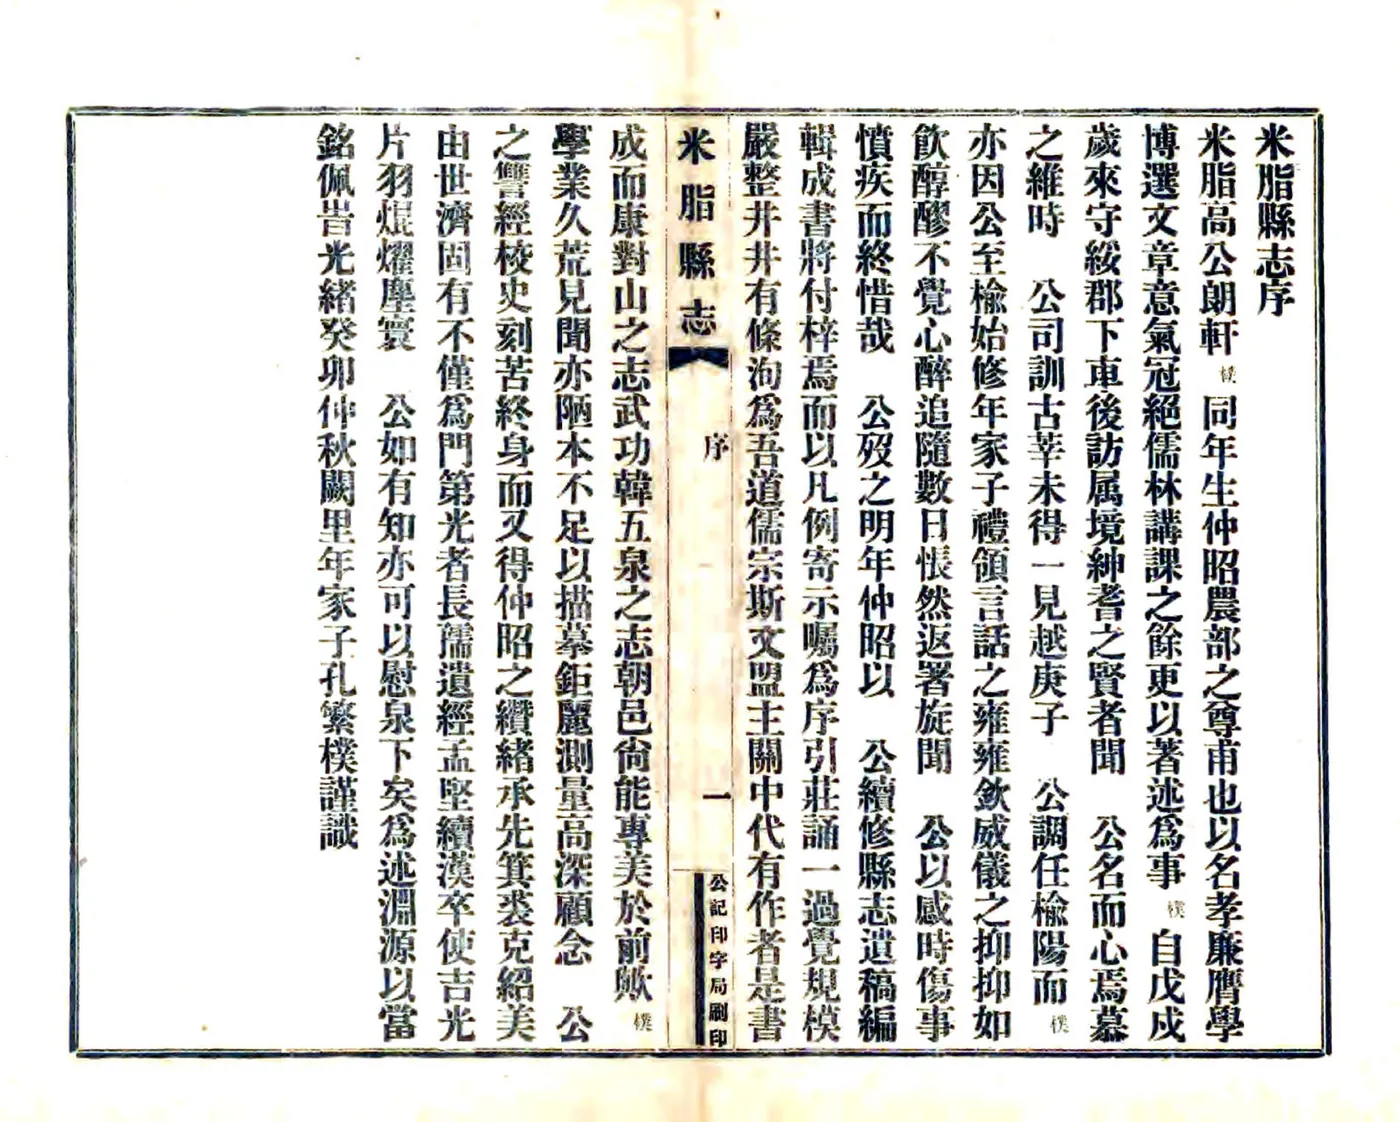 米脂縣志序
米脂高公朗軒樸同年生仲昭農部之尊甫也以名孝廉膺學
博選文章意氣冠絕儒林講課之餘更以著述爲事樸自戊戌
歲來守綏郡下車後訪属境紳耆之賢者聞公名而心焉慕
之維時公司訓古莘未得一見越庚子公調任榆陽而樸
亦因公至榆始修年家子禮領言話之雍雍欽威儀之抑抑如
飲醇醪不覺心醉追隨數日悵然返署旋聞公以感時傷事
憤疾而終惜哉公歿之明年仲昭以公續修縣志遺稿編
輯成書將付梓焉而以凡例寄示囑爲序引莊誦一過覺規模
嚴整井井有條洵爲吾道儒宗斯文盟主關中代有作者是書
米脂縣志
序
一
公記印字局刷印
成而康對山之志武功韓五泉之志朝邑尙能專美於前歟樸
學業久荒見聞亦陋本不足以描摹鉅麗測量高深顧念公
之讐經校史刻苦終身而又得仲昭之纘緒承先箕裘克紹美
由世濟固有不僅爲門第光者長孺遺經孟堅續漢卒使吉光
片羽焜燿塵寰公如有知亦可以慰泉下矣爲述淵源以當
銘佩旹光緒癸卯仲秋闕里年家子孔繁樸謹識